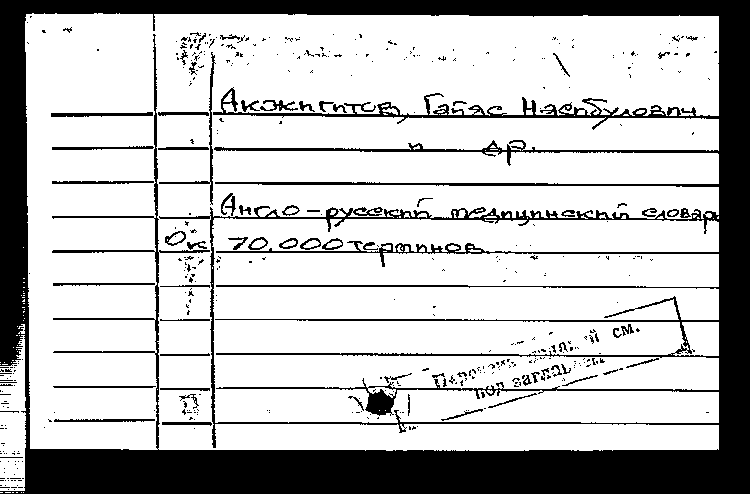 Акжигитов, Гаяс Насибулович
и др.
Англо-русский медицинский словарь
Ок 70.000 терминов.
Перечень изданий см.
под заглавием